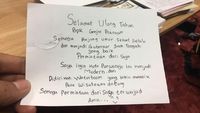 Selamat Ulang Tahun
Bpk Ganjar Pranowo
Semoga Panjang umur Sehat Selalu
dan menjadi Gubernur Jawa Tengah
yang baik
Permintaan dari Saya
Saya ingin kota Purwokerto ini menjadi
Modern dan
Didirikan Waterboom yang bisa menarik
Para Wisatawan datang
Semoga Permintaan dari Saya terwujud
Amin